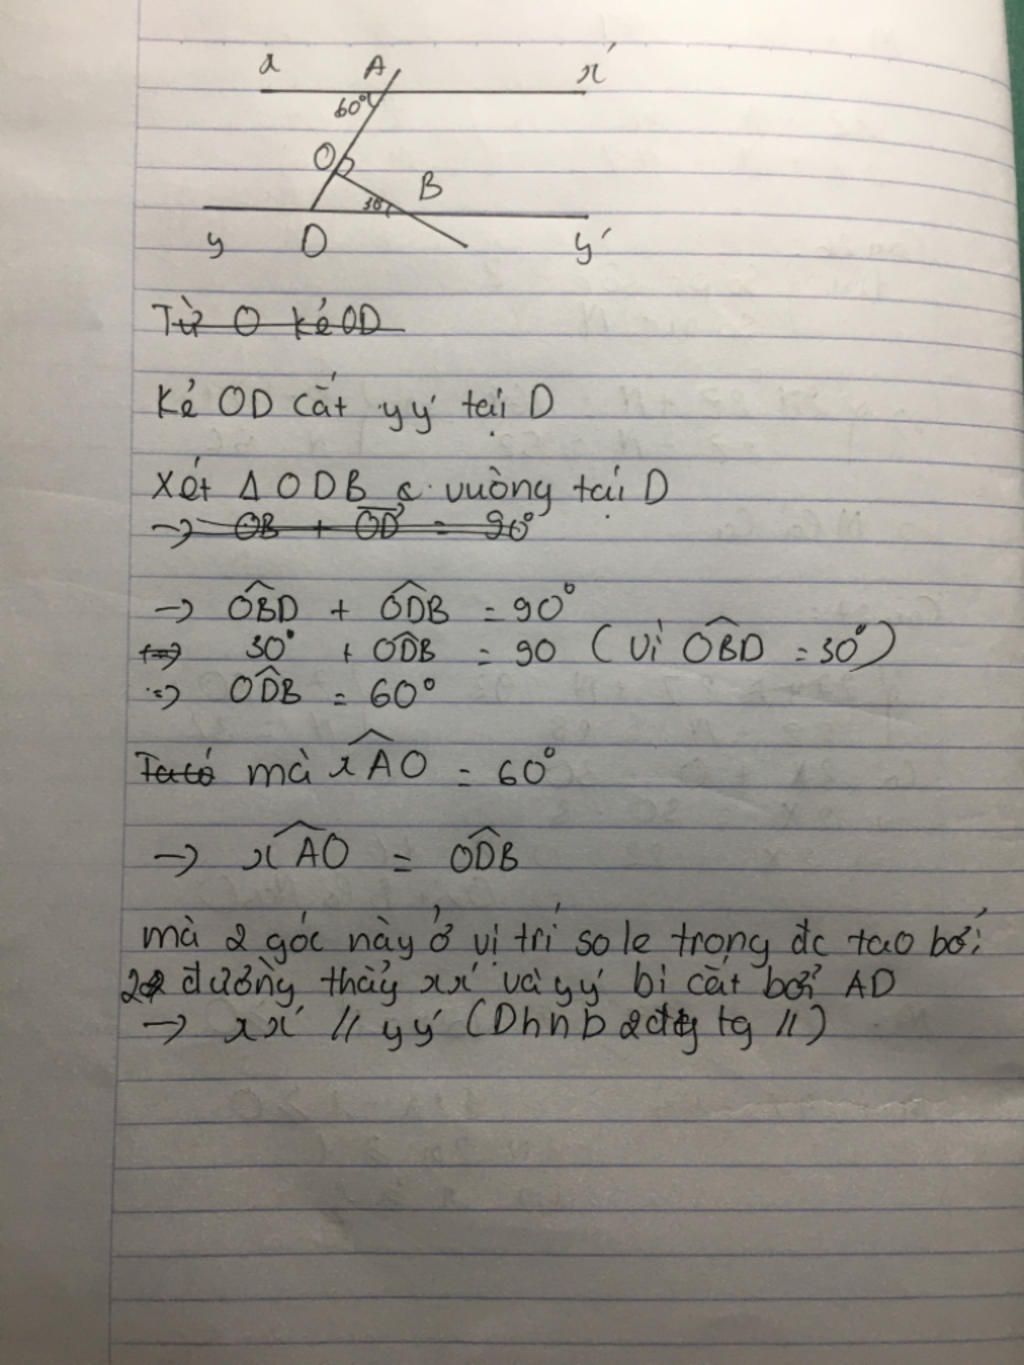 x A x'
60°
O
30 B
y D y'
Từ O kẻ OD
Kẻ OD cắt yy' tại D
Xét Δ ODB vuông tại D
→ OB + OD = 90°
→ OBD + ODB = 90°
<=> 30° + ODB = 90 (Vì OBD = 30°)
=> ODB = 60°
Ta có mà xAO = 60°
→ xAO = ODB
mà 2 góc này ở vị trí so le trong đc tạo bởi
2 đường thẳg xx' và yy' bị cắt bởi AD
→ xx' // yy' (Dhnb 2 đtg //)